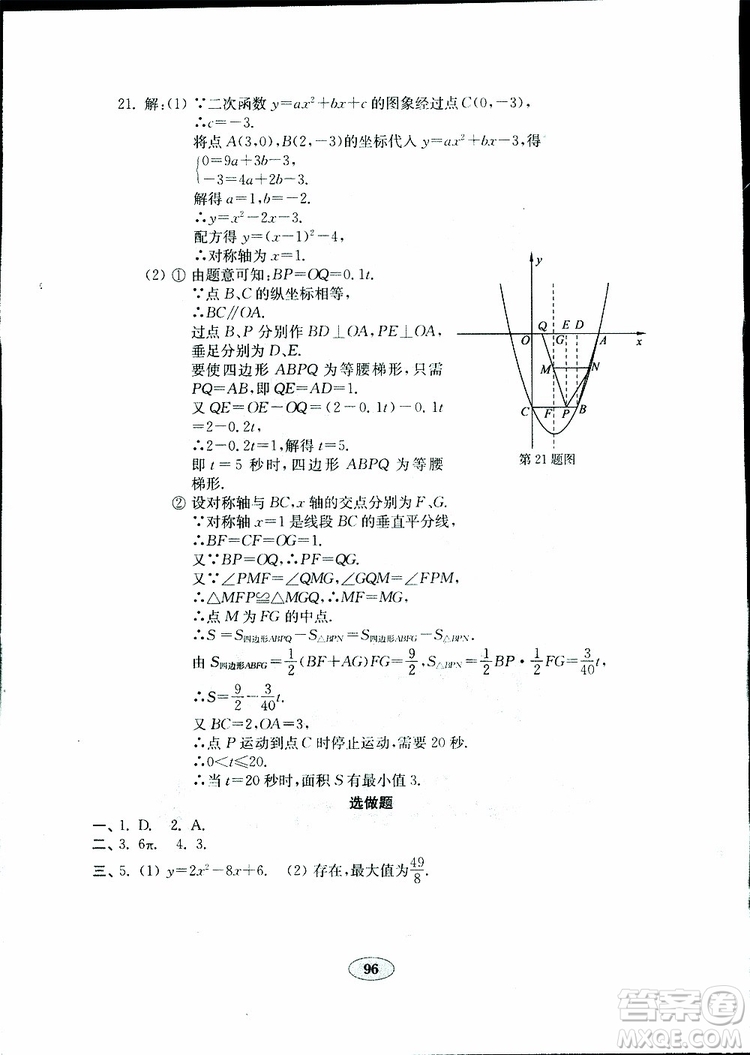 21. 解:(1) ∵二次函数 y=ax²+bx+c 的图象经过点 C(0,-3),
∴c=-3.
将点 A(3,0),B(2,-3)的坐标代入 y=ax²+bx-3,得
{0=9a+3b-3,
-3=4a+2b-3.
解得 a=1,b=-2.
∴y=x²-2x-3.
配方得 y=(x-1)²-4,
∴对称轴为 x=1.
(2) ① 由题意可知:BP=OQ=0.1t.
∵点 B、C 的纵坐标相等,
∴BC∥OA.
过点 B、P 分别作 BD⊥OA,PE⊥OA,
垂足分别为 D、E.
要使四边形 ABPQ 为等腰梯形,只需
PQ=AB,即 QE=AD=1.
又 QE=OE-OQ=(2-0.1t)-0.1t
=2-0.2t,
∴2-0.2t=1,解得 t=5.
即 t=5 秒时,四边形 ABPQ 为等腰
梯形.
y
Q E D
O G A x
M N
C F P B
第21题图
② 设对称轴与 BC,x 轴的交点分别为 F、G.
∵对称轴 x=1 是线段 BC 的垂直平分线,
∴BF=CF=OG=1.
又∵BP=OQ,∴PF=QG.
又∵∠PMF=∠QMG,∠GQM=∠FPM,
∴△MFP≌△MGQ,∴MF=MG,
∴点 M 为 FG 的中点.
∴S=S四边形ABPQ-S△BPN=S四边形ABFG-S△BPN.
由 S四边形ABFG=1/2(BF+AG)FG=9/2,S△BPN=1/2BP·1/2FG=3/40t,
∴S=9/2-3/40t.
又 BC=2,OA=3,
∴点 P 运动到点 C 时停止运动,需要 20 秒.
∴0<t≤20.
∴当 t=20 秒时,面积 S 有最小值 3.
选做题
一、1. D. 2. A.
二、3. 6π. 4. 3.
三、5. (1) y=2x²-8x+6. (2) 存在,最大值为49/8.
96
答案卷
MXQE.COM